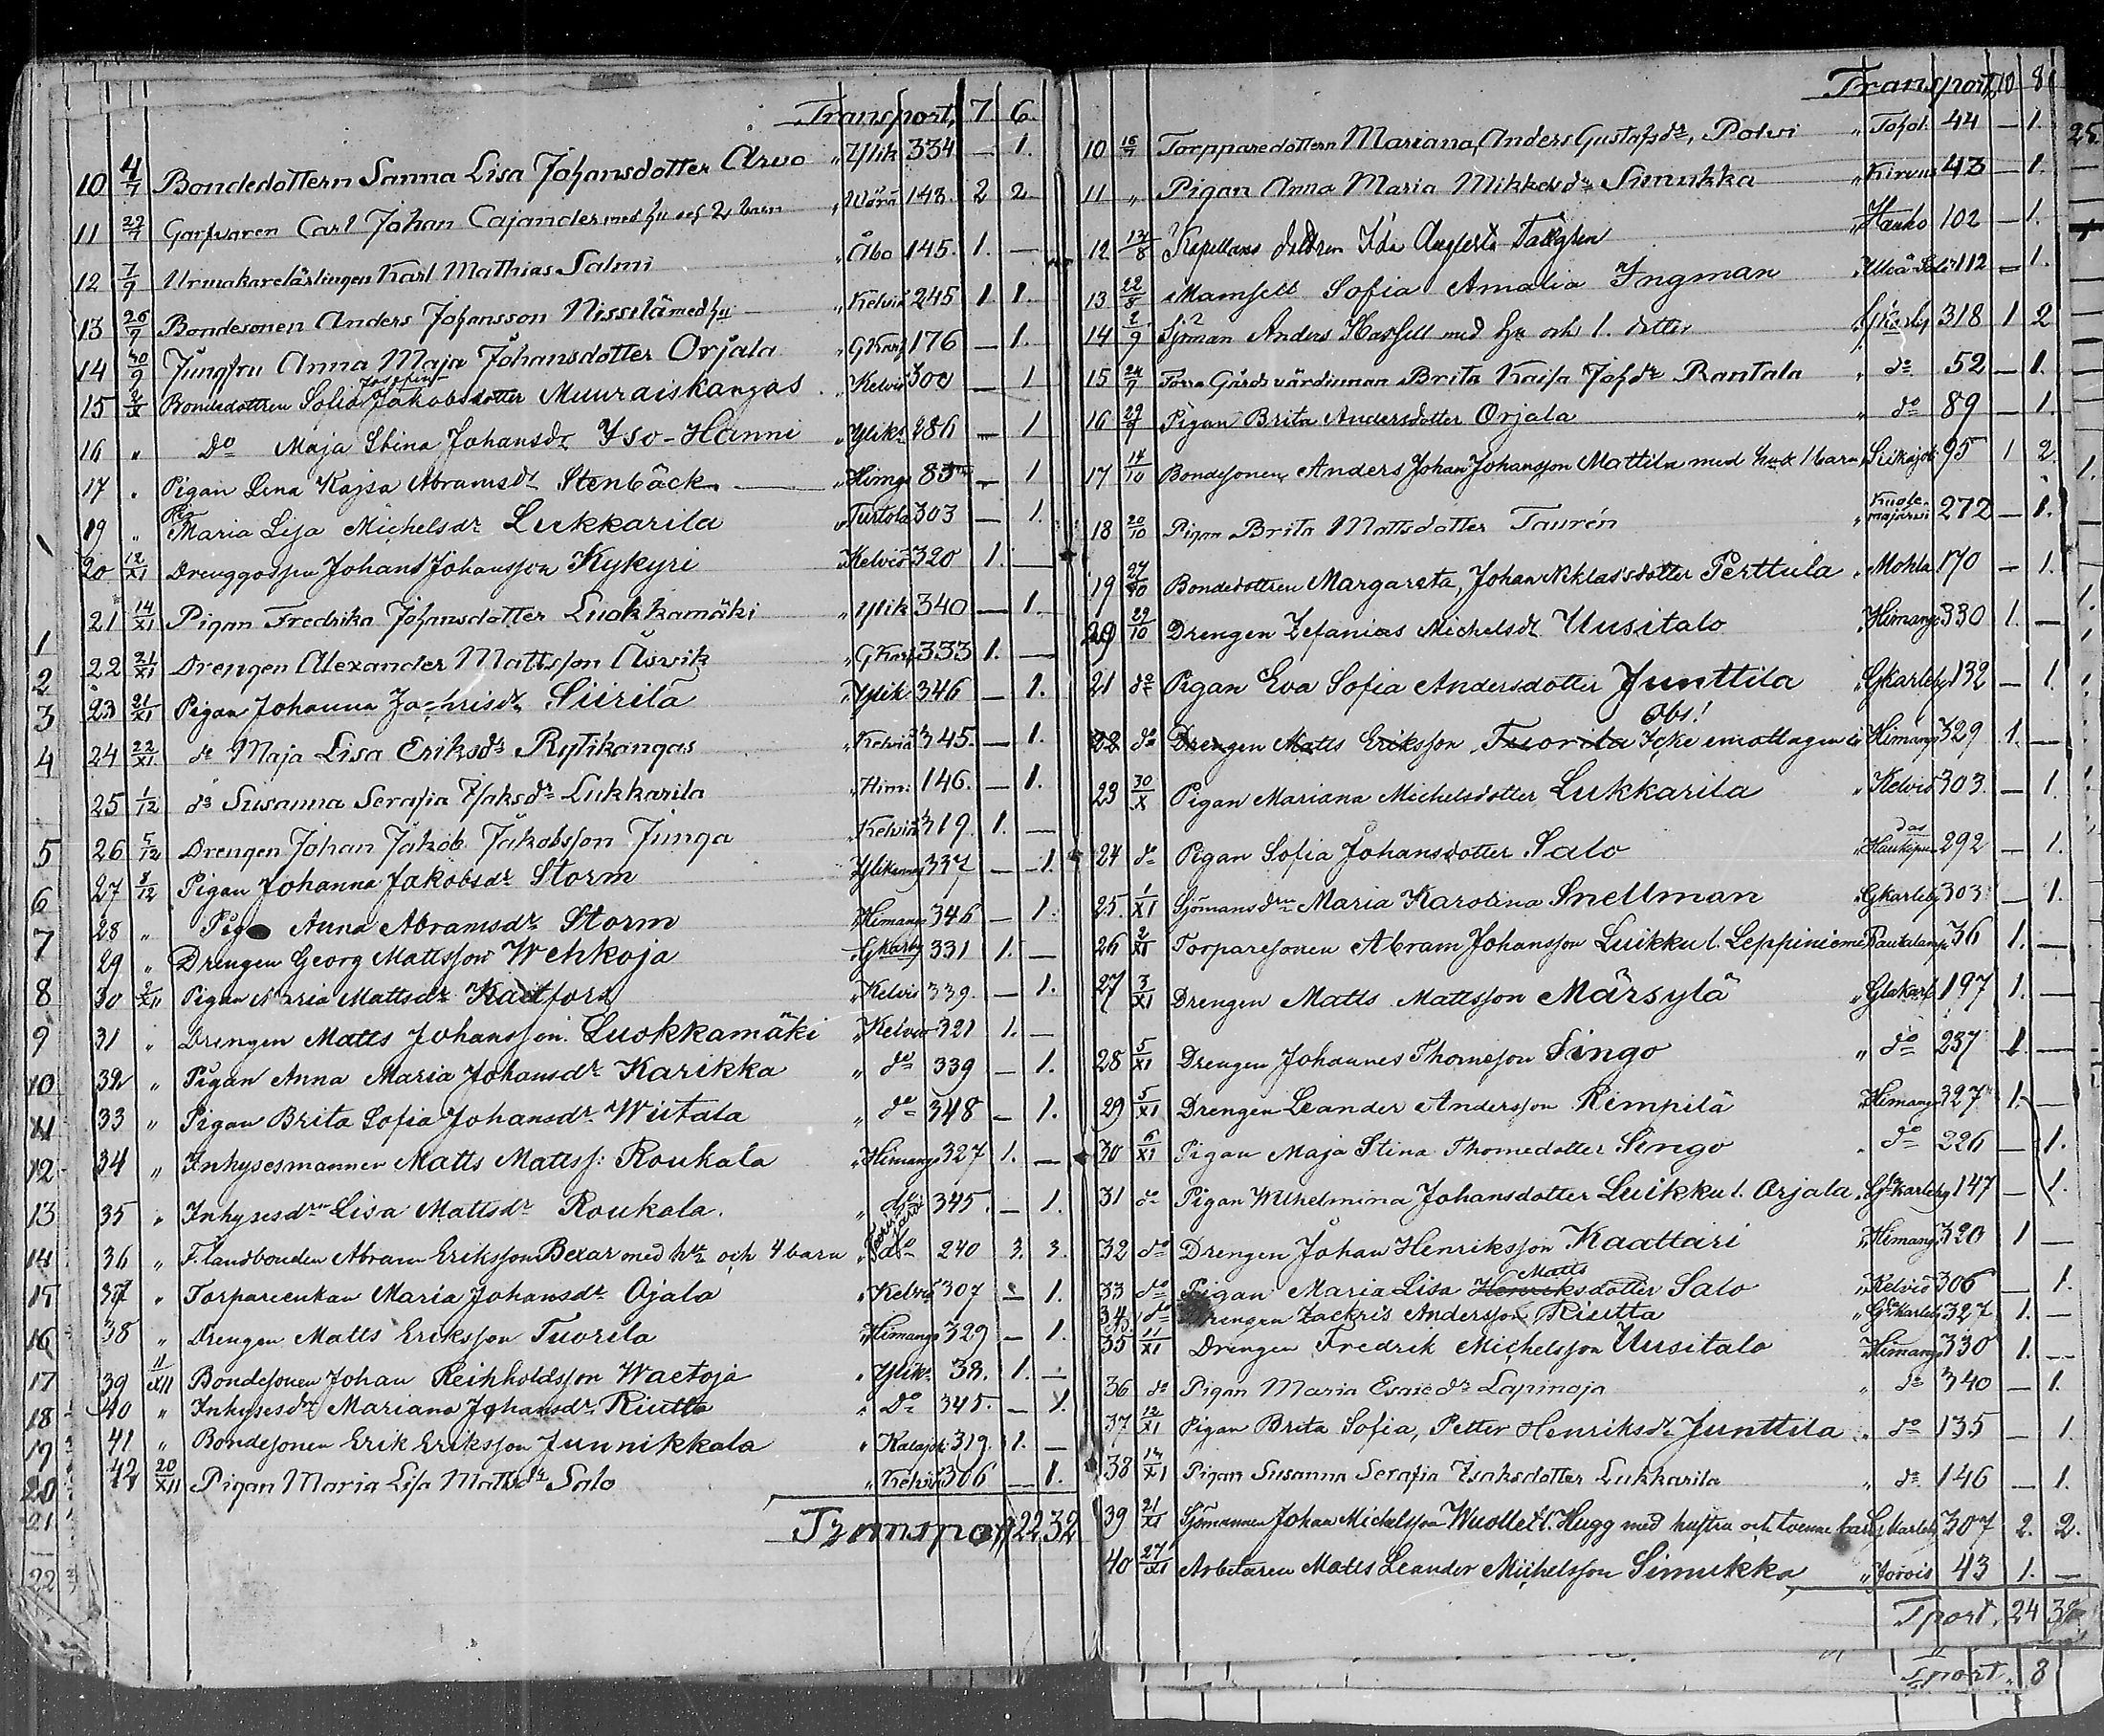 Transport, 7. 6.
10 4/7 Bondedottern Sanna Lisa Johansdotter Arvo " Ylik 334 — 1.
11 22/7 Garfvaren Carl Johan Cajander med hu och 2 barn " Wörå 148. 2 2
12 7/9 Urmakarelärlingen Karl Mathias Salmi " Åbo 145. 1. —
13 26/9 Bondesonen Anders Johansson Nissilä med hu " Kelviå 245 1. 1.
14 30/9 Jungfru Anna Maja Johansdotter Orjala " GKarl 176 — 1.
15 2/X Bondedottren Sofia Josefina Jakobsdotter Muuraiskangas " Kelviå 300 — 1
16 " Do Maja Stina Johansdr Iso-Hanni " Ylik. 286 — 1
17 " Pigan Lena Kajsa Abramsdr Stenbäck " Himg 83 — 1
19 " Pig Maria Lisa Michelsdr Lukkarila " Turtola 303 — 1.
20 12/XI Drenggossen Johan Johansson Kykyri " Kelviå 320 1. —
21 14/XI Pigan Fredrika Johansdotter Luokkamäki " Ylik 340 — 1.
22 21/XI Drengen Alexander Mattsson Åsvik " GKarl 333 1. —
23 21/XI Pigan Johanna Zachrisdr Siirilä " Ylik 346 — 1.
24 22/XI dr Maja Lisa Eriksdr Rytikangas " Kelviå 345. — 1.
25 1/12 do Susanna Serafia Isaksdr Lukkarila " Him: 146. — 1.
26 5/12 Drengen Johan Jakob Jakobsson Junga " Kelviå 319. 1. —
27 8/12 Pigan Johanna Jakobsdr Storm " Ylikannus 337 — 1.
28 " Pig Anna Abramsdr Storm " Himang 346 — 1.
29 " Drengen Georg Mattsson Wehkoja " GKarby 331 1. —
30 9/XII Pigan Maria Mattsdr " Kelviå 339. — 1.
31 " Drengen Matts Johansson Luokkamäki " Kelviå 321 1. —
32 " Pigan Anna Maria Johansdr Karikka " do 339 — 1.
33 " Pigan Brita Sofia Johansdr Wiitala " do 348 — 1.
34 " Inhysesmannen Matts Mattss: Roukala " Himang 327 1. —
35 " Inhysesdrn Lisa Mattsdr Roukala. " do 345. — 1.
36 " F. landbonden Abram Eriksson Bexar med hu och 4 barn " 240 3. 3.
37 " Torpareenkan Maria Johansdr Ojala " Kelviå 307 — 1.
38 " Drengen Matts Eriksson Tuorila " Himang 329 — 1.
39 11/XII Bondesonen Johan Reinholdsson Waetoja " Ylik. 38. 1. —
40 " Inhysesdr Mariana Johansdr Riutta " Do 345. — 1.
41 " Bondesonen Erik Eriksson Junnikkala " Kalajok 319. 1. —
42 20/XII Pigan Maria Lisa Mattsdr Salo " Kelviå 306 — 1.
Transport 22 32
1
2
3
4
5
6
7
8
9
10
11
12
13
14
15
16
17
18
19
20
21
22
Transport, 10 8
10 16/7 Torpparedottern Mariana, Anders Gustafsdr, Polvi " Tohol. 44 — 1.
11 " Pigan Anna Maria Mikkelsdr Simukka " Kirvus 43 — 1.
12 13/8 Kapellans dottren Ida Augusta Tallgren " Hauho 102 — 1.
13 22/8 Mamsell Sofia Amalia Ingman " Uleå 112 — 1.
14 2/9 Sjöman Anders Hassell med hu och 1. dotter " Gkarleb 318 1 2
15 24/9 Forra Gårdsvärdinnan Brita Kaisa Johdr Rantala " do 52 — 1.
16 29/9 Pigan Brita Andersdotter Orjala " do 89 — 1.
17 14/10 Bondesonen Anders Johan Johansson Mattila med hu & 1 barn " Siikajok 95 1 2
18 20/10 Pigan Brita Mattsdotter Taurén " Kuolemajärvi 272 — 1.
19 27/10 Bondedottren Margareta, Johan Niklasdotter Perttula " Mohla 170 — 1.
20 29/10 Drengen Zefanias Michelsdr Uusitalo " Himango 330 1. —
21 do Pigan Eva Sofia Andersdotter Junttila " Gkarleby 132 — 1.
22 do Drengen Matts Eriksson Tuorila Obs! Icke emottagen i Himango 329 1. —
23 30/X Pigan Mariana Michelsdotter Lukkarila " Kelviå 303 — 1.
24 do Pigan Sofia Johansdotter Salo " Haukipudas 292 — 1.
25. 1/XI Sjömansdrn Maria Karolina Snellman " Gkarleby 303 — 1.
26 2/XI Torparesonen Abram Johansson Luikku l. Leppiniemi " Rautalamp 36 1. —
27 3/XI Drengen Matts Mattsson Märsylä " Glakarl 197 1. —
28 5/XI Drengen Johannes Thomesson Singo " do 237 1. —
29 5/XI Drengen Leander Andersson Rempilä " Himang 327 1. —
30 6/XI Pigan Maja Stina Thomedotter Singo " do 226 — 1.
31 do Pigan Wilhelmina Johansdotter Luikku l. Orjala " Gkarleby 147 — 1.
32 do Drengen Johan Henriksson Kaattari " Himang 320 1 —
33 do Pigan Maria Lisa Henriks Mattsdotter Salo " Kelviå 306 — 1.
34 do Drengen Zackris Andersson Riutta " Gkarleby 327 1. —
35 11/XI Drengen Fredrik Michelsson Uusitalo " Himang 330 1. —
36 do Pigan Maria Esaiedr Lapinoja " do 340 — 1.
37 12/XI Pigan Brita Sofia, Petter Henriksdr Junttila " do 135 — 1.
38 14/XI Pigan Susanna Serafia Isaksdotter Lukkarila " do 146 — 1.
39 21/XI Sjömannen Johan Michelsson Wuollet l. Hugg med hustru och tvenne barn Gkarleby 307 2. 2.
40 27/XI Arbetaren Matts Leander Michelsson Simukka " Jorois 43 1. —
Tport. 24 38
Tport. 8
25